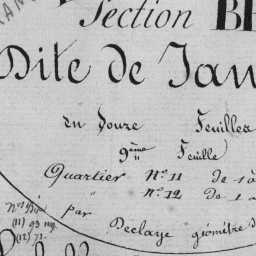 Section BE
Dite de Jan
en Douze Feuilles
9ème Feuille
Quartier N° 11 de 1 à
" N° 12 de 1
par
(11) 93
(12) 72
Declaye géomètre d